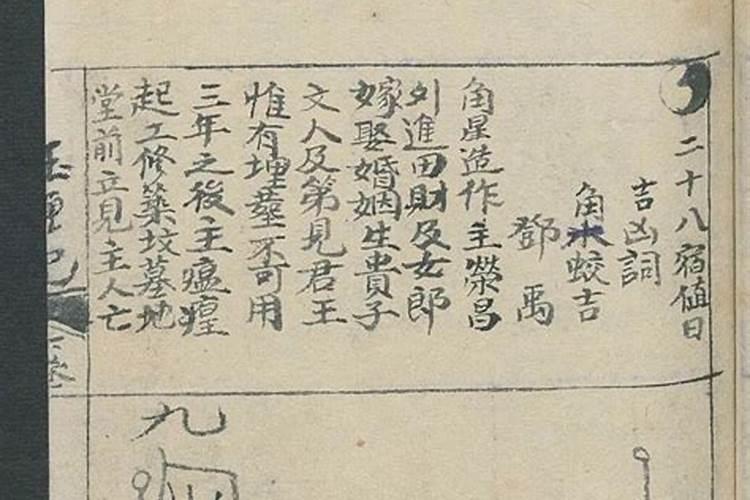 二十八宿值日
吉凶詞
角木蛟吉
鄧禹
角星造作主榮昌
外進田財及女郎
嫁娶婚姻生貴子
文人及第見君王
惟有埋葬不可用
三年之後主瘟㾮
起工修築坟墓地
堂前立見主人亡
九